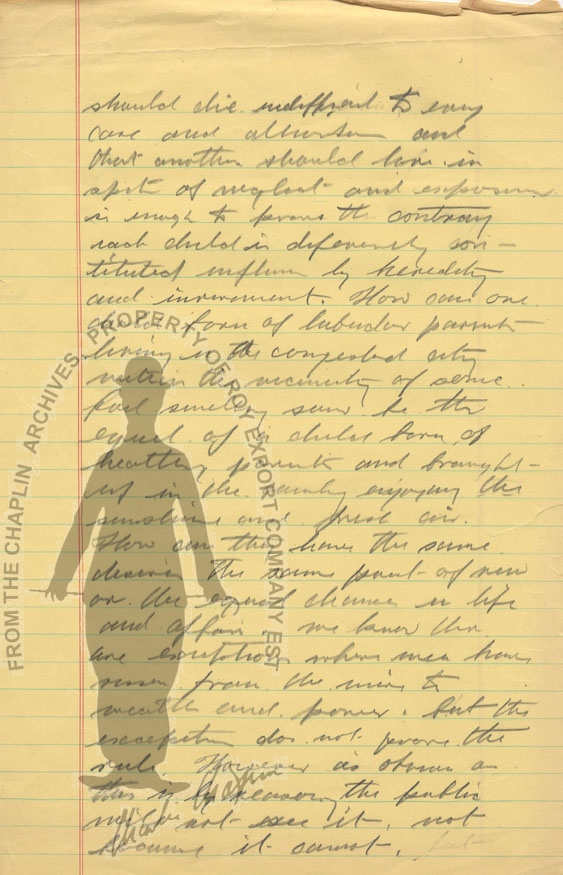 should die indifferent to every
care and attention and
that another should live in
spite of neglect and exposure
is enough to prove the contrary
each child is differently con-
tituted influen by heredity
and invironment. How can one
born of labudar parents
living in the congested city
within the vicinity of some
foul smelling sewer be the
equal of a child born of
healthy parents and brought-
up in the country enjoying the
sunshine and fresh air.
How can they have the same
desires the same point of view
or the equal chances in life
and affair. we know ther
are exceptions where men have
risen from the mire to
wealth and power. but the
exception dos not prove the
rule. However as obvious as
this is by reasoning the public
will not see it, not
because it cannot, but
FROM THE CHAPLIN ARCHIVES, PROPERTY OF ROY EXPORT COMPANY EST